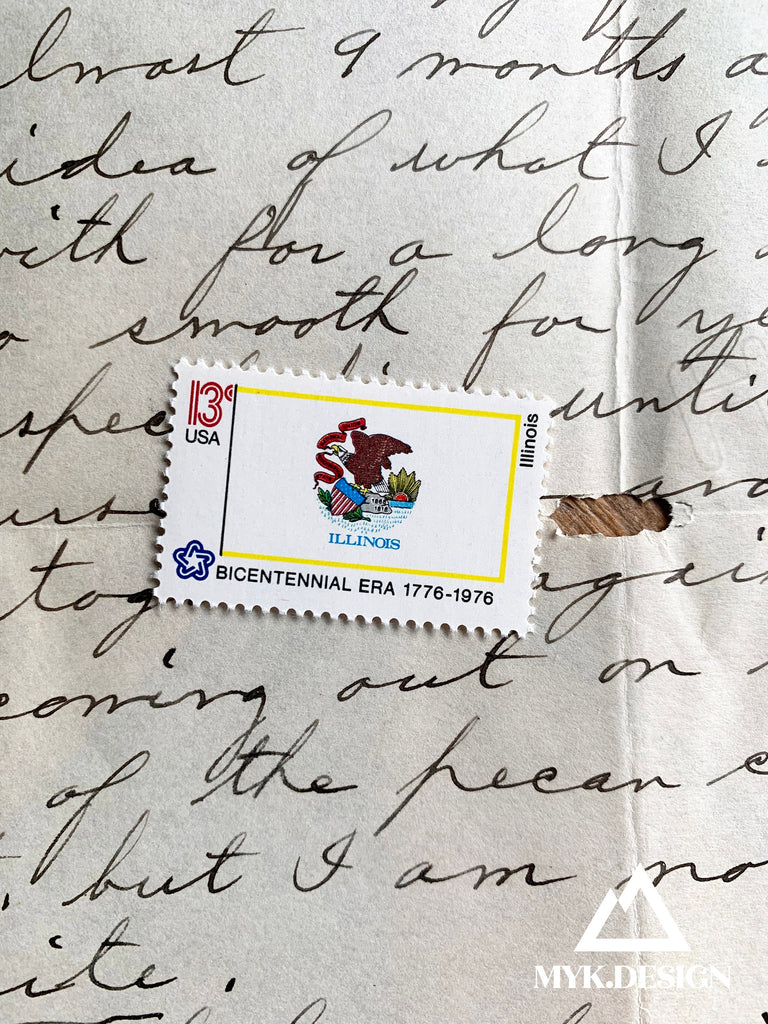 lmost 9 months a
idea of what I
with for a long
smooth for ye
spec until
13c
USA
Illinois
1868
1818
ILLINOIS
BICENTENNIAL ERA 1776-1976
and
tog again
coming out on
of the pecan c
but I am no
ite.
MYK.DESIGN